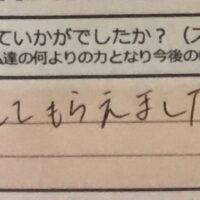 ていかがでしたか？（ス
達の何よりの力となり今後の
てもらえました